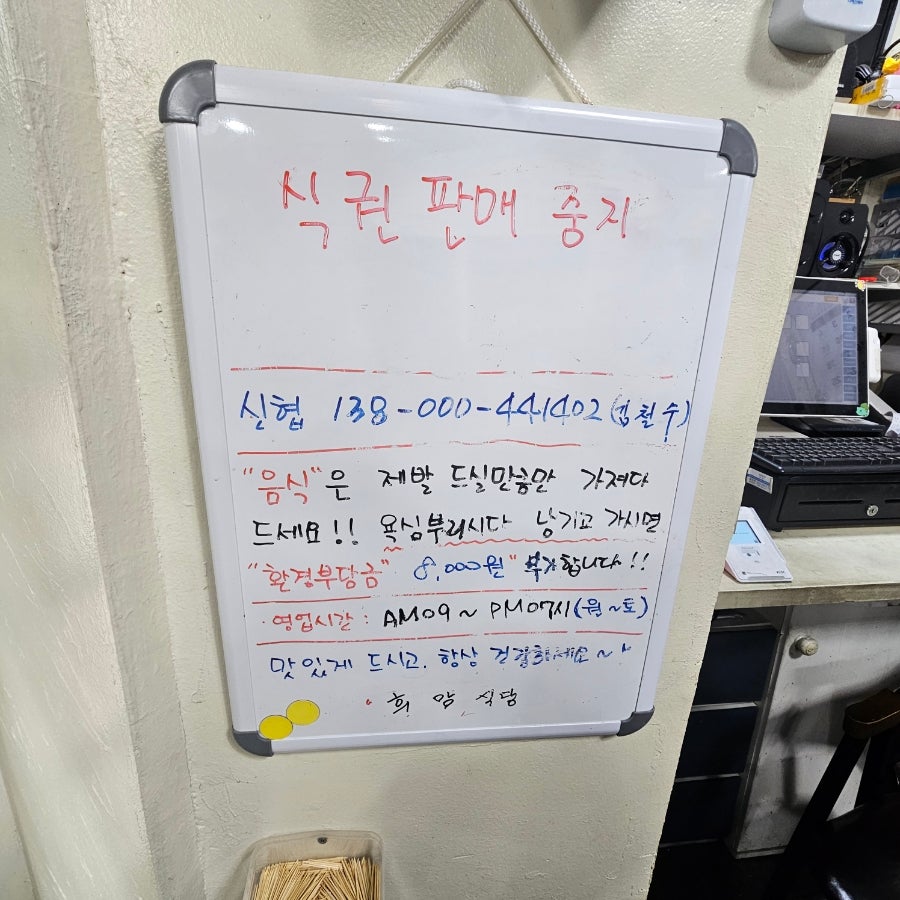 식권 판매 중지
신협 138-000-441402 (김철수)
"음식"은 제발 드실만큼만 가져다
드세요!! 욕심부리시다 남기고 가시면
"환경부담금" 8,000원" 부가합니다!!
·영업시간 : AM09~ PM07시(월~토)
맛있게 드시고. 항상 건강하세요~^
· 희 암 식당